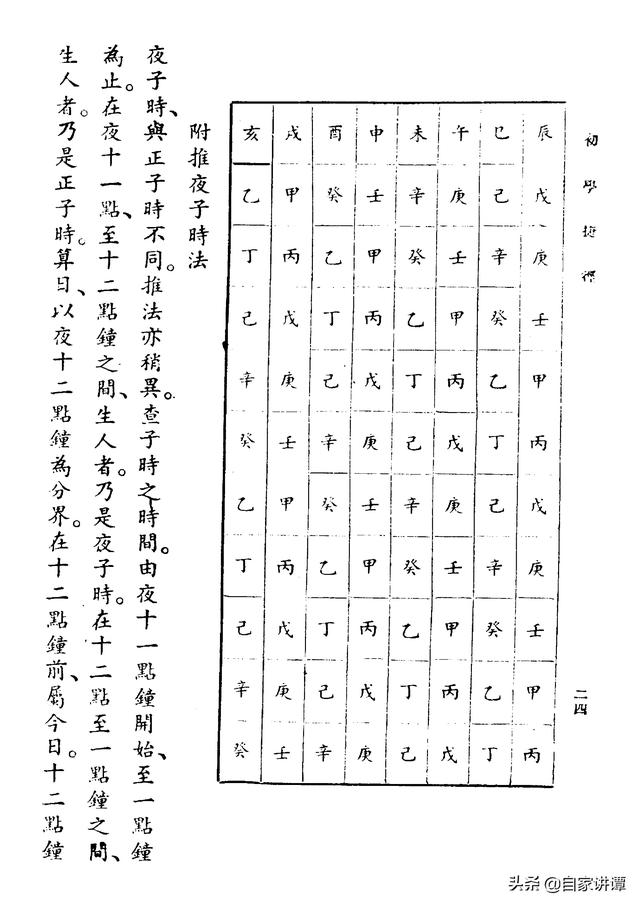 初學捷徑
二四
辰戊庚壬甲丙戊庚壬甲丙
巳己辛癸乙丁己辛癸乙丁
午庚壬甲丙戊庚壬甲丙戊
未辛癸乙丁己辛癸乙丁己
申壬甲丙戊庚壬甲丙戊庚
酉癸乙丁己辛癸乙丁己辛
戌甲丙戊庚壬甲丙戊庚壬
亥乙丁己辛癸乙丁己辛癸
附推夜子時法
夜子時、與正子時不同。推法亦稍異。查子時之時間。由夜十一點鐘開始、至一點鐘
為止。在夜十一點、至十二點鐘之間、生人者。乃是夜子時。在十二點至一點鐘之間、
生人者。乃是正子時。算日、以夜十二點鐘為分界。在十二點鐘前、屬今日。十二點鐘
头条 @自家讲谭